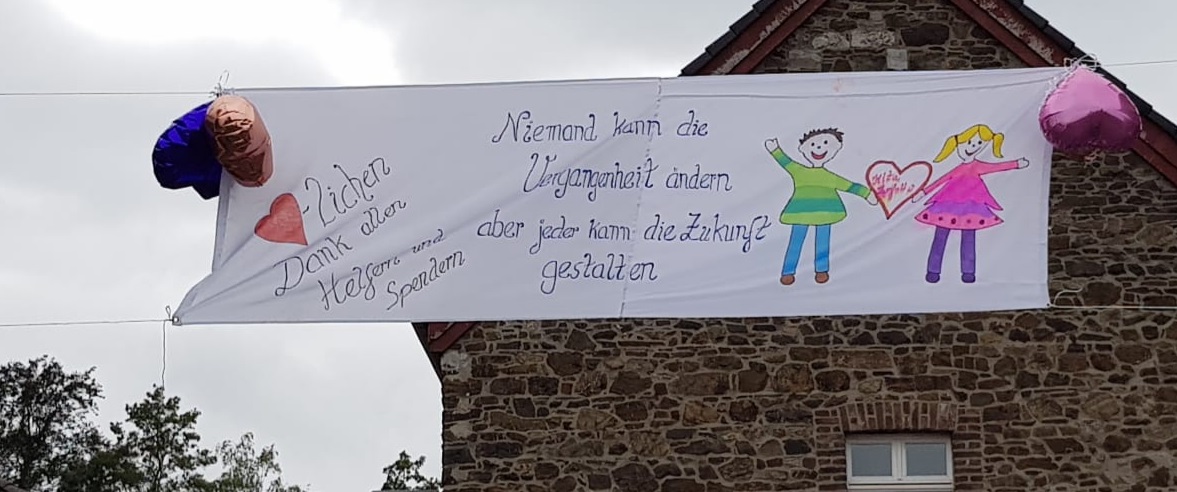 -Zlichen
Dank allen
Helfern und
Spendern
Niemand kann die
Vergangenheit ändern
aber jeder kann die Zukunft
gestalten
Kita